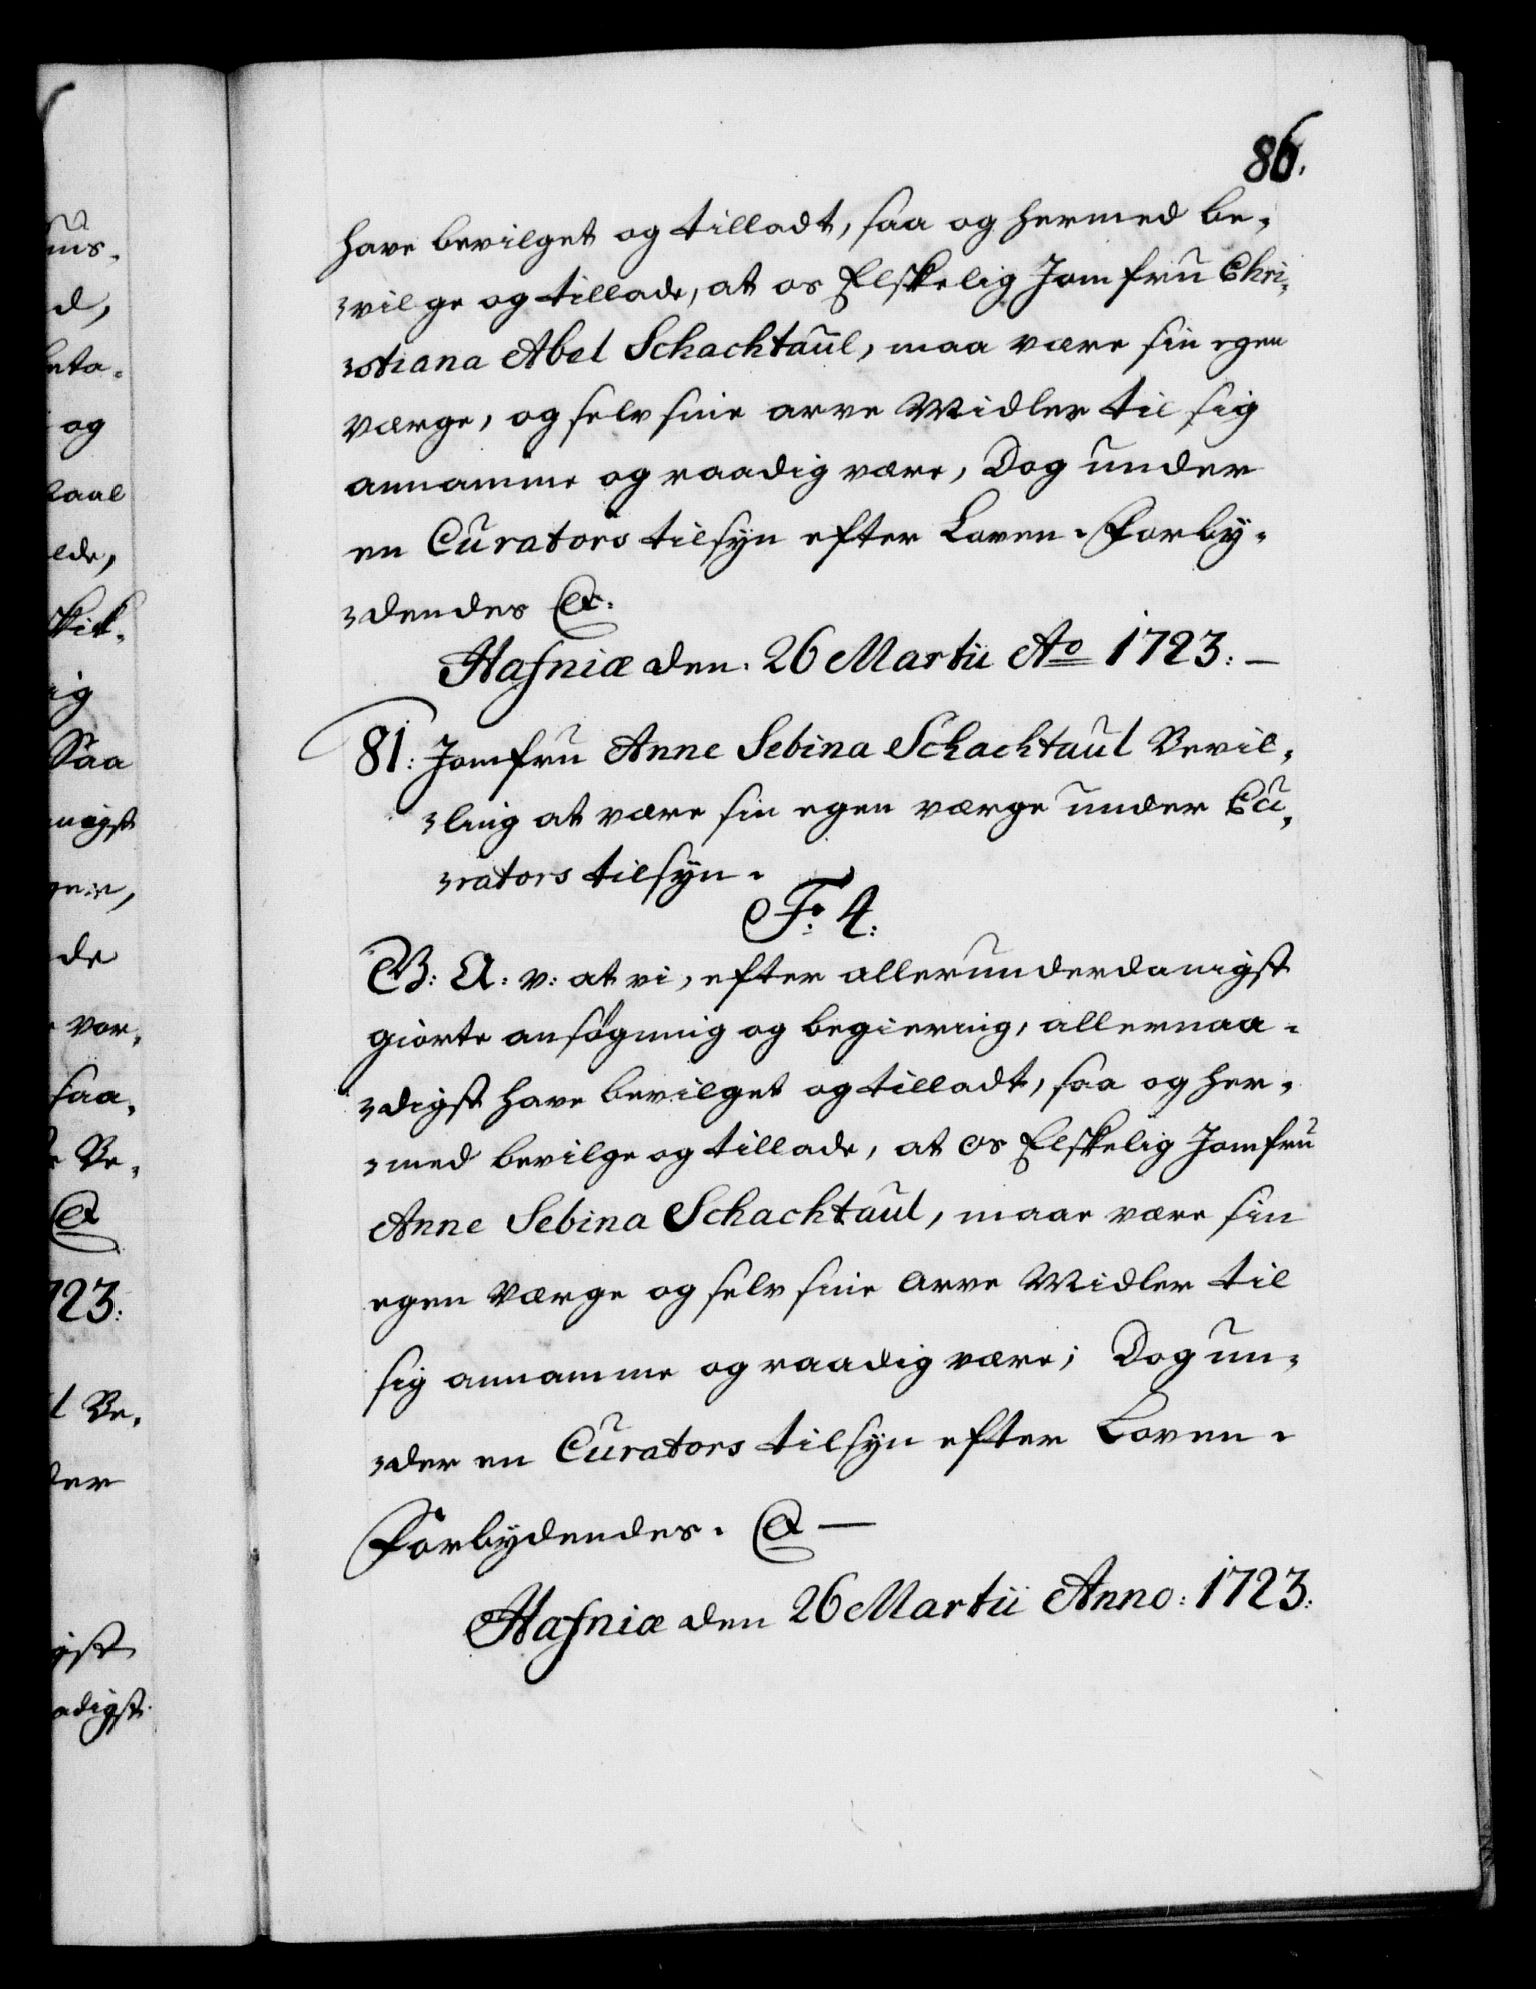 86.
have bevilget og tilladt, saa og hermed be-
-vilge og tillade, at os Elskelig Jomfru Chri-
-stiana Abel Schachtaul, maa være sin egen
værge, og selv sine arve Midler til sig
annamme og raadig være, Dog under
en Curators tilsyn efter Loven. Forby-
-dendes &c.
Hafniæ den. 26 Martii Ao 1723: —
81: Jomfru Anne Sebina Schachtaul Bevil-
-ling at være sin egen værge under Cu-
-rators tilsyn.
F. 4.
G: A: v: at vi, efter allerunderdanigst
giorte ansøgning og begiering, allernaa-
-digst have bevilget og tilladt, saa og her-
-med bevilge og tillade, at os Elskelig Jomfru
Anne Sebina Schachtaul, maae være sin
egen Værge og selv sine Arve Midler til
sig annamme og raadig være; Dog un-
-der en Curators tilsyn efter Loven.
Forbydendes. &c —
Hafniæ den 26 Martii Anno: 1723: